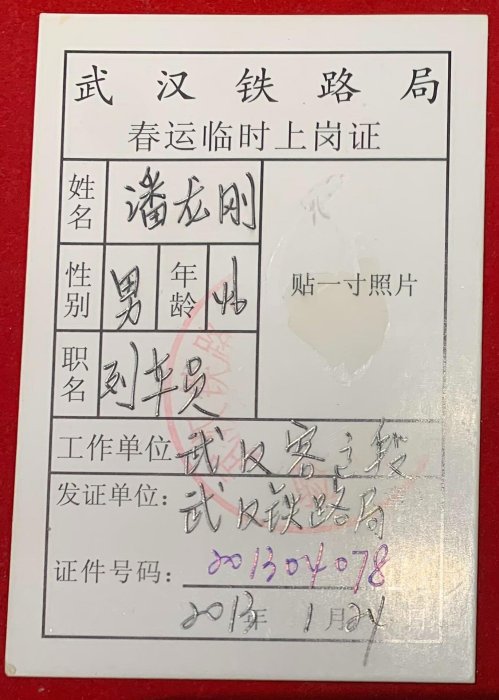 武汉铁路局
春运临时上岗证
姓名 潘龙刚
性别 男 年龄 46
贴一寸照片
职名 列车员
工作单位 武汉客运段
发证单位：武汉铁路局
证件号码：201304078
2013年1月24